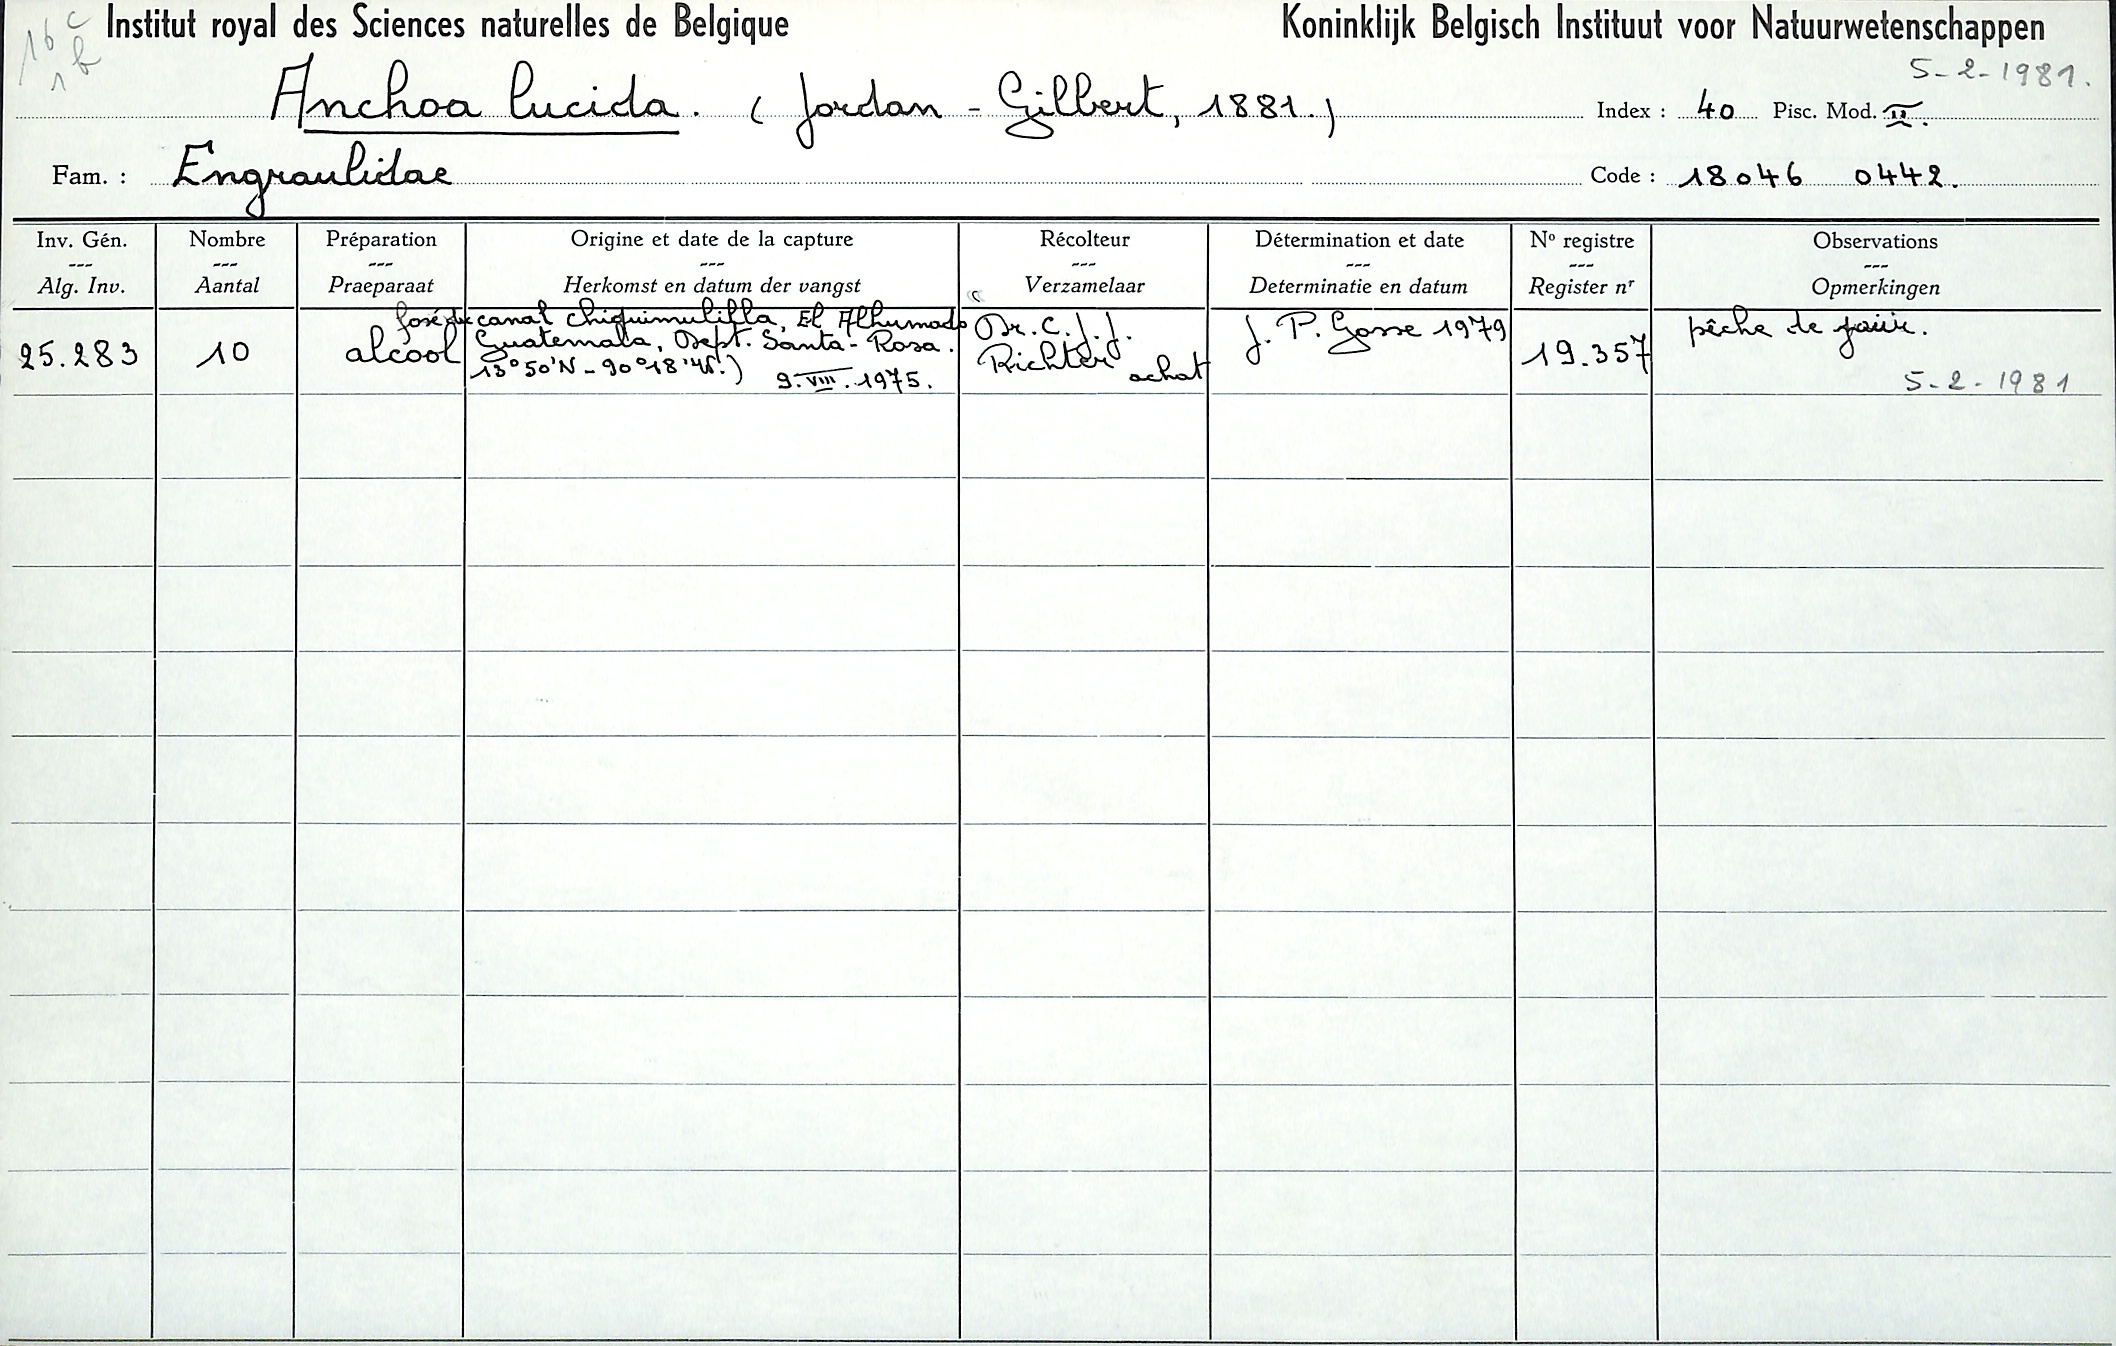 16 c
1 b
Institut royal des Sciences naturelles de Belgique
Koninklijk Belgisch Instituut voor Natuurwetenschappen
5-2-1981.
Anchoa lucida. (Jordan - Gilbert, 1881.)
Index : 40 Pisc. Mod. II.
Fam. : Engraulidae
Code : 18046 0442.
Inv. Gén. --- Alg. Inv.
Nombre --- Aantal
Préparation --- Praeparaat
Origine et date de la capture --- Herkomst en datum der vangst
Récolteur --- Verzamelaar
Détermination et date --- Determinatie en datum
Nº registre --- Register nr
Observations --- Opmerkingen
25.283
10
alcool
canal Chiquimulilla, El Ahumado
Guatemala, Dept. Santa-Rosa.
13°50'N - 90°18'W.)
9.VIII.1975.
Dr. C. J. J.
Richter
achat
J. P. Gosse 1979
19.357
pêche de jour.
5-2-1981